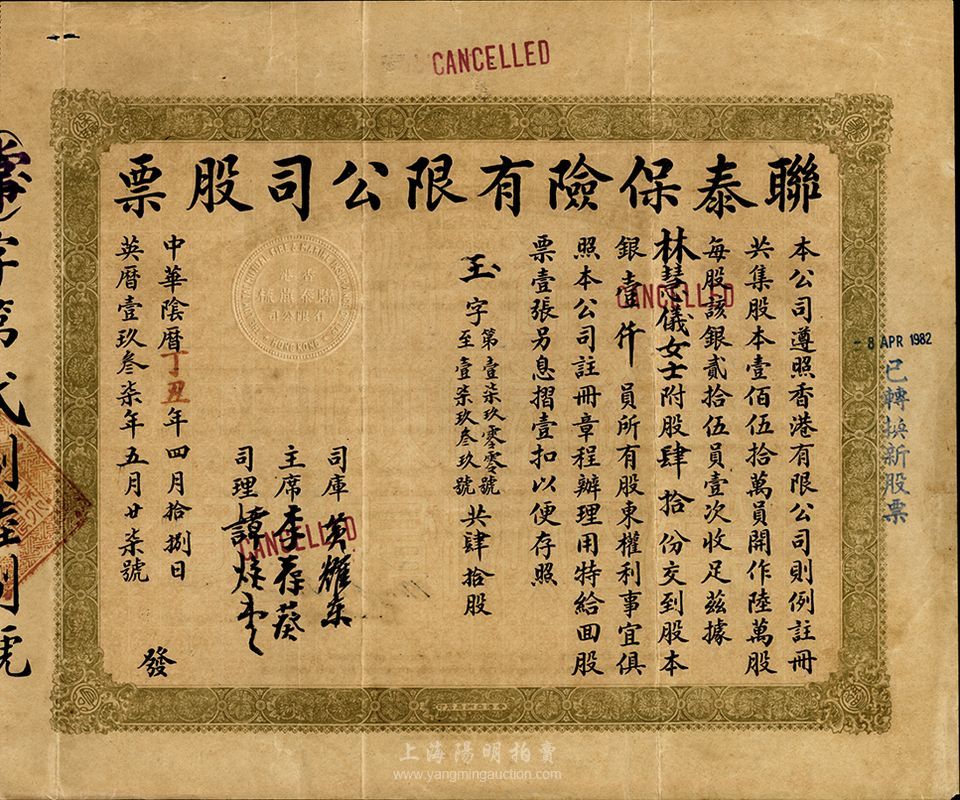 CANCELLED
聯泰保險有限公司股票
本公司遵照香港有限公司則例註冊
共集股本壹佰伍拾萬員開作陸萬股
每股該銀貳拾伍員壹次收足茲據
林慧儀女士附股肆拾份交到股本
銀壹仟員所有股東權利事宜俱
照本公司註冊章程辦理用特給回股
票壹張另息摺壹扣以便存照
玉字第壹柒玖零零號
至壹柒玖叁玖號共肆拾股
CANCELLED
司庫
主席李葆葵
司理譚煥堂
CANCELLED
香港
聯泰
有限公司
HONGKONG
中華陰曆丁丑年四月拾捌日
英曆壹玖叁柒年五月廿柒號
發
- 8 APR 1982
已轉換新股票
字第
上海陽明拍賣
www.yangmingauction.com